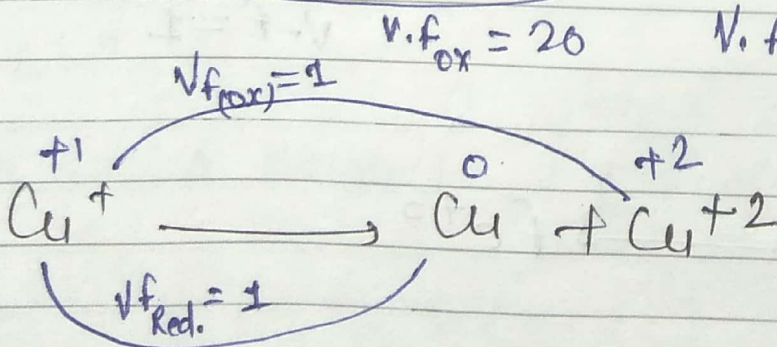 V.f ox = 20 V. f
Vf(ox) = 1
+1 0 +2
Cu+ → Cu + Cu+2
Vf Red. = 1